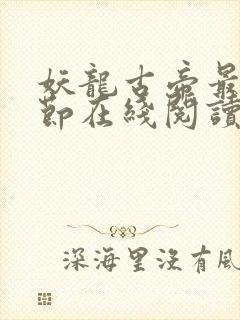 妖龍古帝最
節在綫閱讀
深海里沒有風